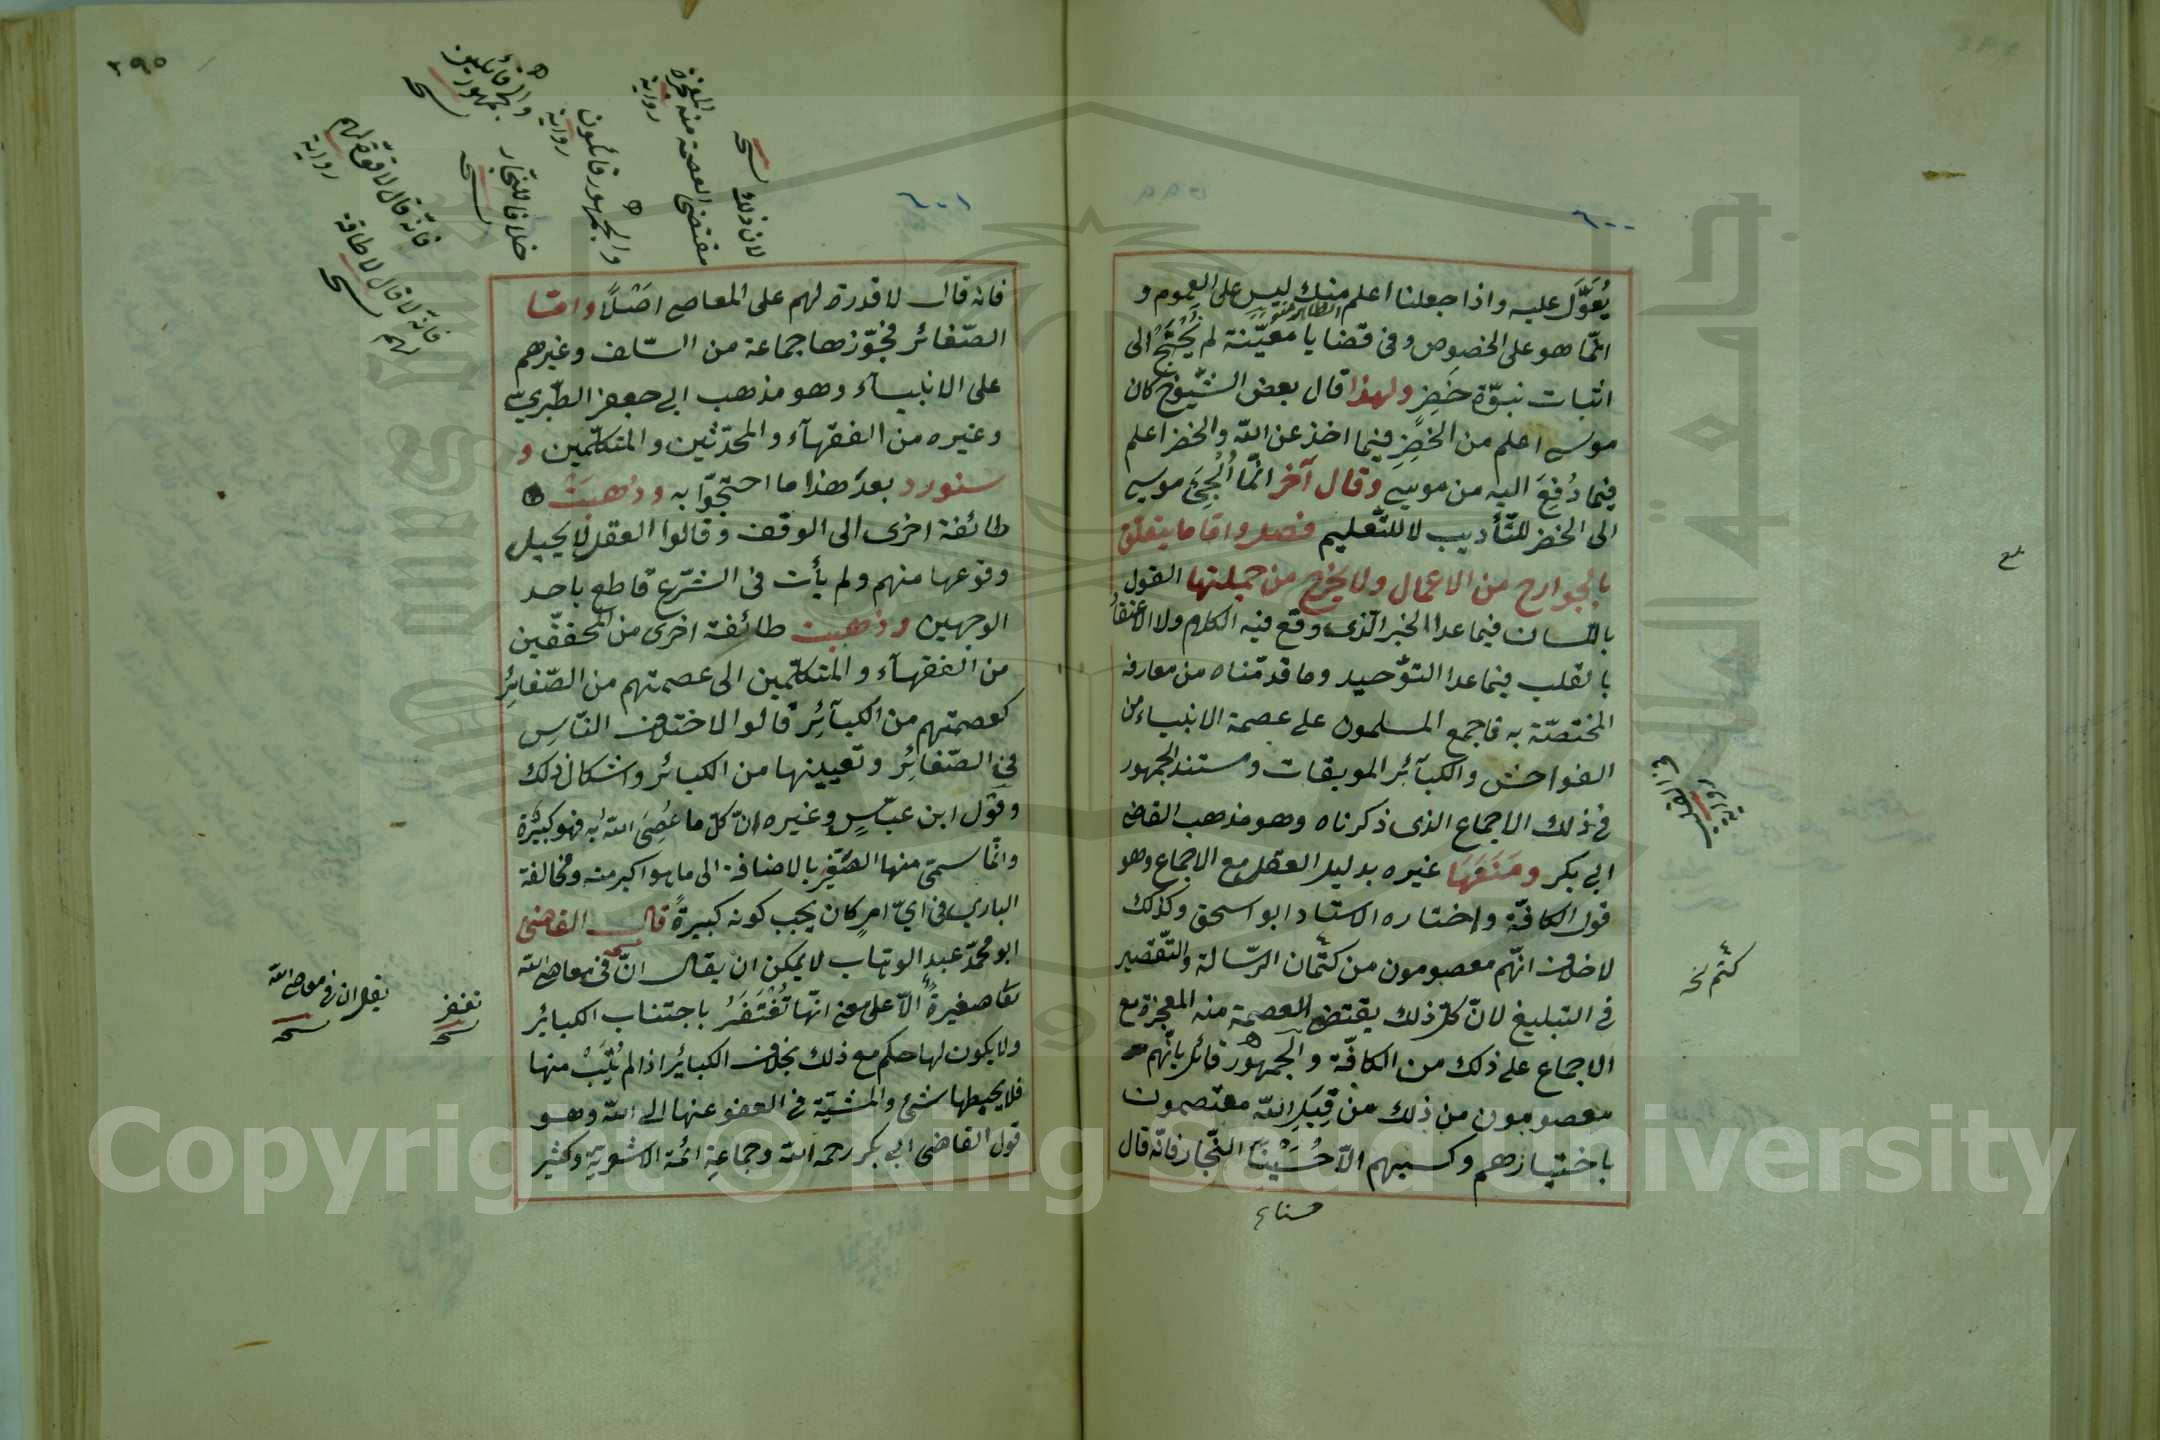 ٦٠٠
يُعَوَّل عليه واذا جعلنا اعلم منك ليس على العموم و
انما هو على الخصوص وفى قضايا معيّنة لم يُحْتَجْ الى
اثبات نبوّة خَضِرٍ ولهذا قال بعض الشّيوخ كان
موسى اعلم من الخَضِرِ فيما اخذ عن اللّه والخضر اعلم
فيما دُفِعَ اليه من موسى وقال آخر انّما أُلْجِئَ موسى
الى الخضر للتّأديب لا للتّعليم فصل واما ما يتعلّق
بالجوارح من الاعمال ولا يخرج من جملتها القول
باللسان فيما عدا الخبر الّذى وقع فيه الكلام ولا الاعتقاد
بالقلب فيما عدا التّوحيد وما قدّمناه من معارفه
المختصّة به فاجمع المسلمون على عصمة الانبياء من
الفواحش والكبآئر الموبقات ومستند الجمهور
فى ذلك الاجماع الذى ذكرناه وهو مذهب القاضى
ابى بكر ومَنَعَهَا غيره بدليل العقل مع الاجماع وهو
قول الكافّة واختاره الاستاد ابو اسحق وكذلك
لا خلاف انّهم معصومون من كتمان الرّسالة والتّقصير
فى التبليغ لانّ كلّ ذلك يقتضى العصمة منه المعجزة مع
الاجماع على ذلك من الكافّة والجمهور قائل بانّهم
معصومون من ذلك من قِبَلِ اللّه معتصمون
باختيارهم وكسبهم الّا حُسَيْنًا النّجار فانّه قال
فى القلب
رواية
كتم نخـ
٣٩٥
٦٠١
فانه قال لا قدرة لهم على المعاصى اصْلًا وامّا
الصّغائر فجوّزها جماعة من السّلف وغيرهم
على الانبيآء وهو مذهب ابى جعفر الطّبرىّ
وغيره من الفقهآء والمحدّثين والمتكلّمين و
سنورد بعدَ هذا ما احتجّوا به وذهبَتْ
طائفة اخرى الى الوقف وقالوا العقل لا يحيل
وقوعها منهم ولم يأت فى الشّرع قاطع باحد
الوجهين وذهبت طائفة اخرى من المحقّقين
من الفقهآء والمتكلّمين الى عصمتهم من الصّغائِرِ
كعصمتهم من الكبآئِرِ قالوا لاختلاف النّاسِ
فى الصّغائِرِ وتعيينها من الكبائر واشكال ذلك
وقول ابن عبّاسٍ وغيره انّ كلّ ما عُصِىَ اللّه به فهو كبيرة
وانّما سمّى منها الصّغير بالاضافة الى ما هو اكبر منه ومخالفة
البارى فى اىّ امرٍ كان يجب كونه كبيرةً قال القاضى
ابو محمّد عبد الوهّاب لا يمكن ان يقال انّ فى معاصى اللّه
صغيرةً الّا على معنى انّها تُغْتَفَرُ باجتناب الكبائر
ولا يكون لها حكم مع ذلك بخلاف الكبائر اذا لم يُتَبْ منها
فلا يحبطها شئ والمشيّة فى العفو عنها الى اللّه وهو
قول القاضى ابى بكر رحمه اللّه وجماعةِ ائمّة الاشعرية وكثير
لان ذلك
مقتضى العصمة منه المعجزة
رواية
والجمهور قائلون
رواية
خلافا للنّجار
فانّه قال لا قوّة لهم
رواية
فانّه قال لا طاقة
لهم
تغفر
يقال ان فى معاصى اللّه
Copyright © King Saud University